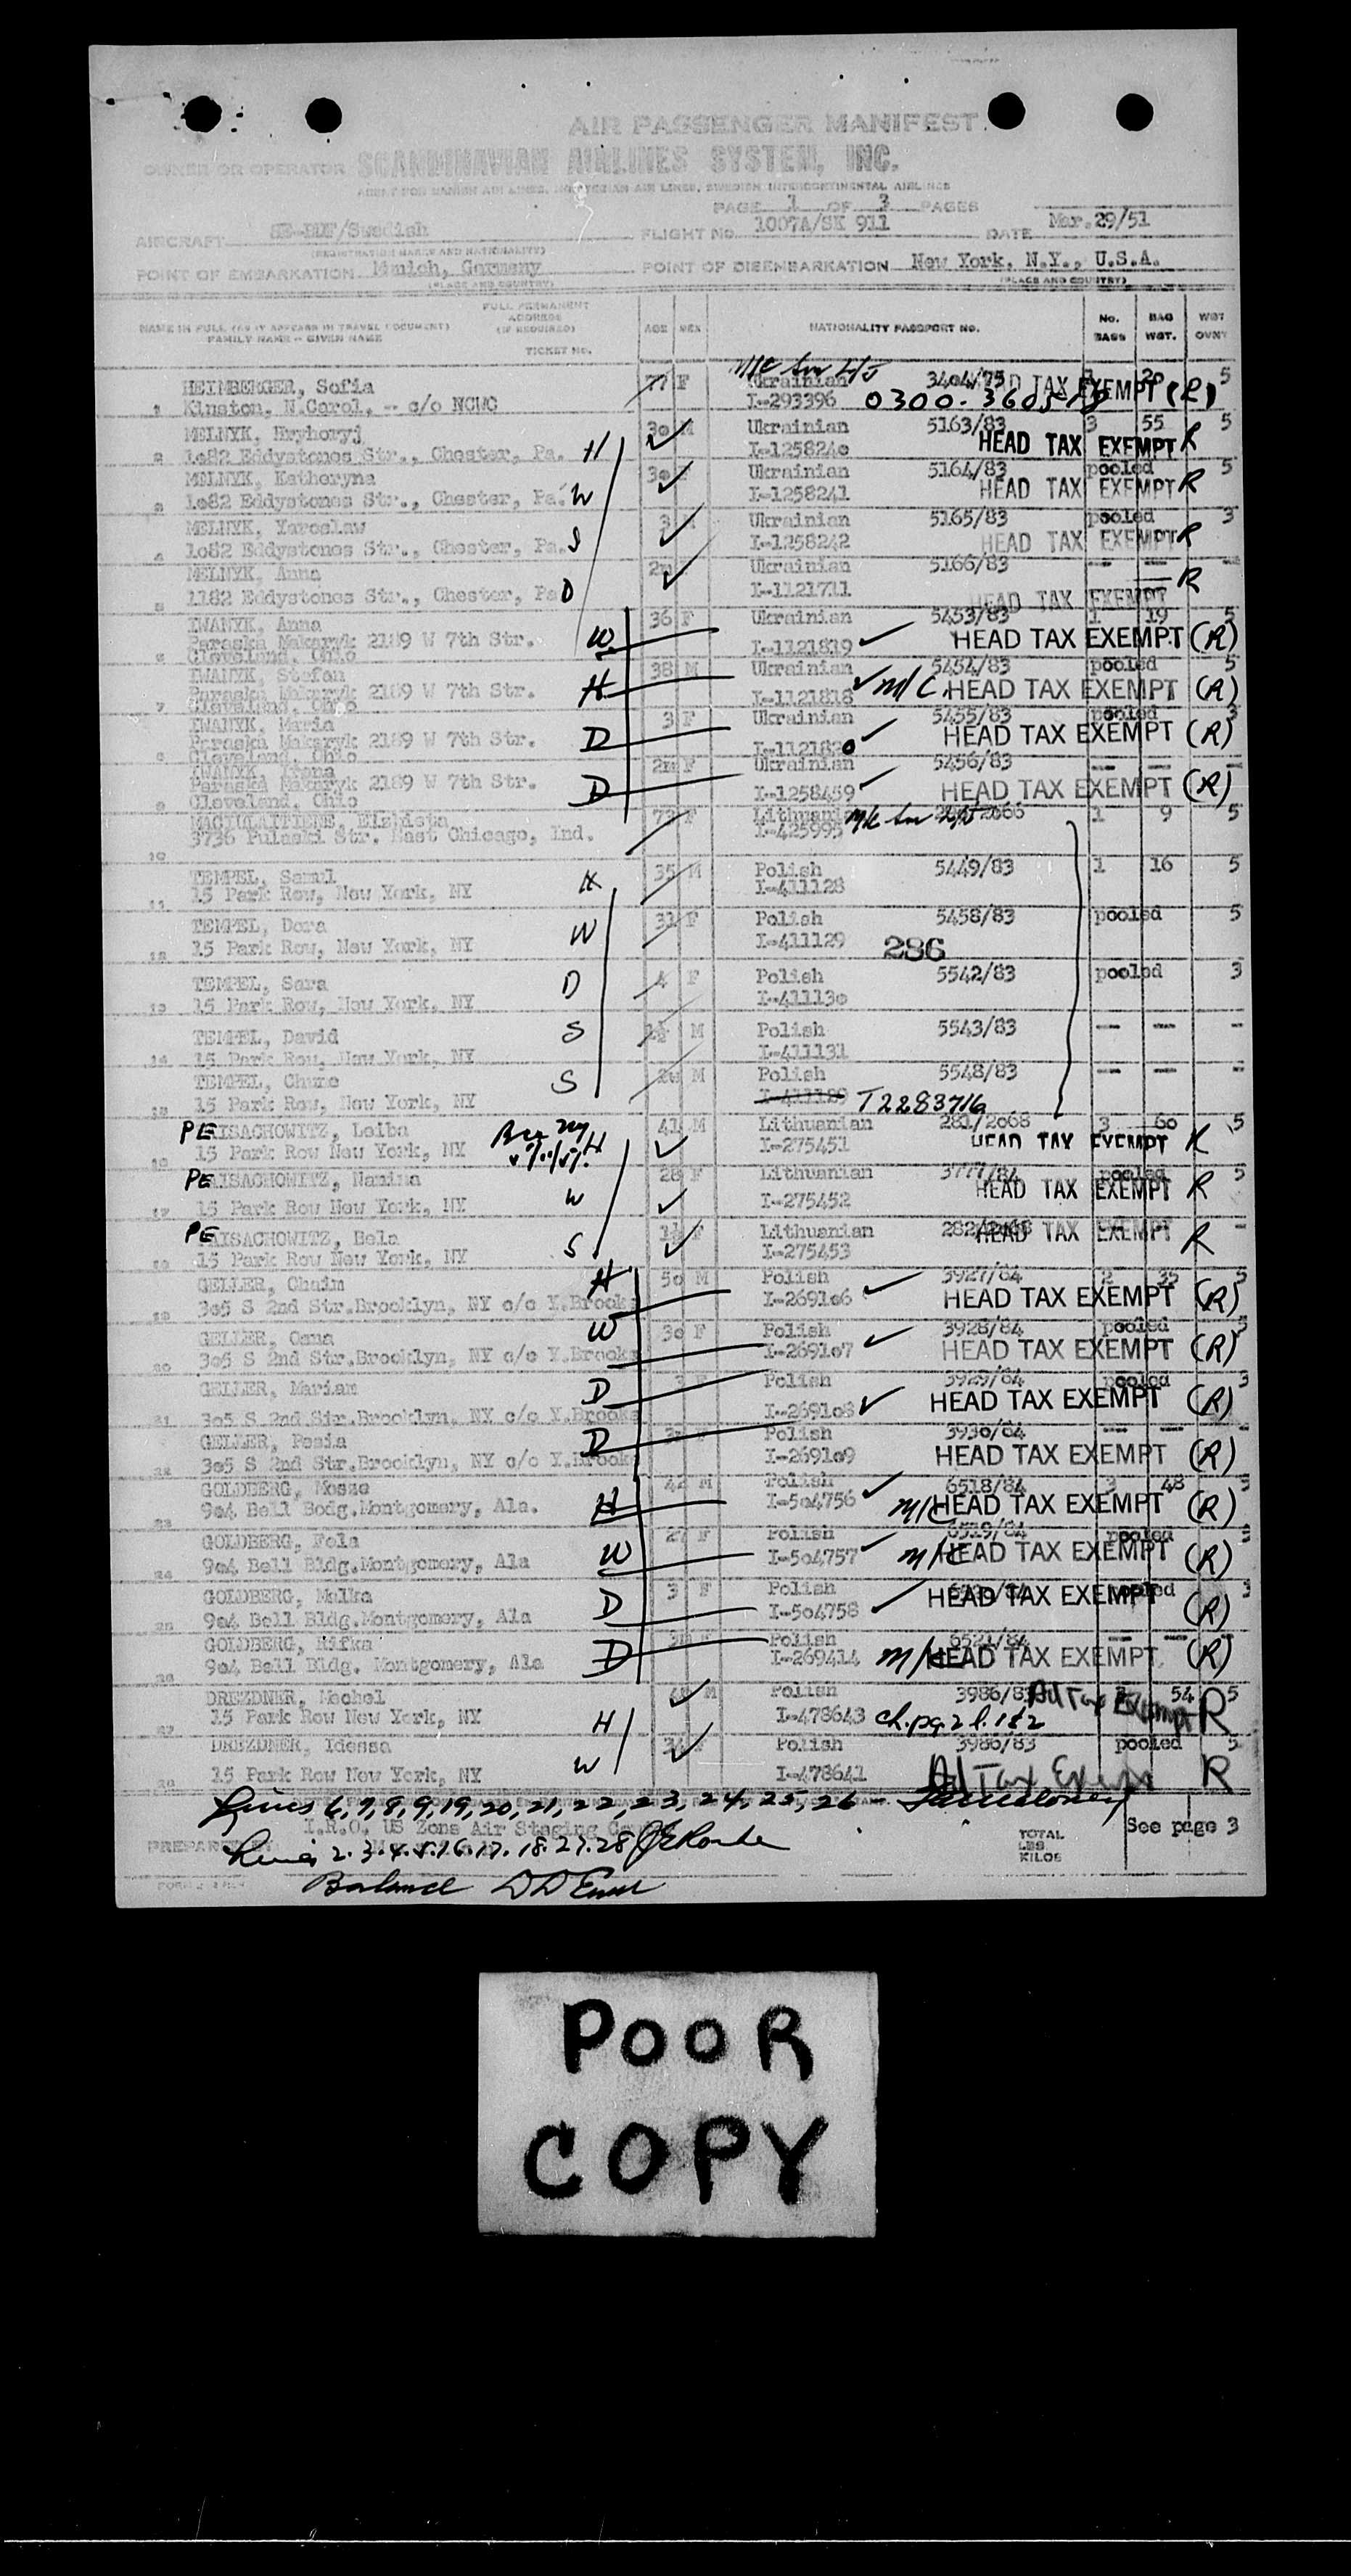 AIR PASSENGER MANIFEST
OWNER OR OPERATOR SCANDINAVIAN AIRLINES SYSTEM, INC.
AGENT FOR DANISH AIR LINES, NORWEGIAN AIR LINES, SWEDISH INTERCONTINENTAL AIRLINES
PAGE 1 OF 3 PAGES
AIRCRAFT /Swedish FLIGHT No. 1007A/SK 911 DATE Mar.29/51
(REGISTRATION MARKS AND NATIONALITY)
POINT OF EMBARKATION Munich, Germany POINT OF DISEMBARKATION New York, N.Y., U.S.A.
(PLACE AND COUNTRY) (PLACE AND COUNTRY)
NAME IN FULL (AS IT APPEARS IN TRAVEL DOCUMENT) FAMILY NAME - GIVEN NAME FULL PERMANENT ADDRESS (IF REQUIRED) TICKET No. AGE SEX NATIONALITY PASSPORT NO. No. BAGS BAG WGT. WGT OVNT
HEIMBERGER, Sofia 77 F Ukrainian 3404/75 20 5
1 Kinston, N.Carol, -- c/o NCWC I-293396 HEAD TAX EXEMPT (R)
MELNYK, Hryhoryj 30 M Ukrainian 5163/83 3 55 5
2 1082 Eddystones Str., Chester, Pa. H I-1258240 HEAD TAX EXEMPT R
MELNYK, Katheryna 30 F Ukrainian 5164/83 pooled 5
3 1082 Eddystones Str., Chester, Pa. W I-1258241 HEAD TAX EXEMPT R
MELNYK, Yaroslaw 3 M Ukrainian 5165/83 pooled 3
4 1082 Eddystones Str., Chester, Pa. S I-1258242 HEAD TAX EXEMPT R
MELNYK, Anna Ukrainian 5166/83 -- -- --
5 1182 Eddystones Str., Chester, Pa D I-1121711 HEAD TAX EXEMPT R
IWANYK, Anna 36 F Ukrainian 5453/83 1 19 5
Paraska Makaryk 2189 W 7th Str. W I-1121819 HEAD TAX EXEMPT (R)
6 Cleveland, Ohio
IWANYK, Stefan 38 M Ukrainian 5454/83 pooled 5
Paraska Makaryk 2189 W 7th Str. H I-1121818 M/C. HEAD TAX EXEMPT (R)
7 Cleveland, Ohio
IWANYK, Maria 3 F Ukrainian 5455/83 pooled 3
Paraska Makaryk 2189 W 7th Str. D I-1121820 HEAD TAX EXEMPT (R)
8 Cleveland, Ohio
IWANYK, F Ukrainian 5456/83 -- -- --
Paraska Makaryk 2189 W 7th Str. D I-1258459 HEAD TAX EXEMPT (R)
9 Cleveland, Ohio
F 1 9 5
3736 Pulaski Str. East Chicago, Ind. I-425995
10
TEMPEL, Samul 35 M Polish 5449/83 1 16 5
11 15 Park Row, New York, NY H I-411128
TEMPEL, Dora 31 F Polish 5458/83 pooled 5
12 15 Park Row, New York, NY W I-411129 286
TEMPEL, Sara 4 F Polish 5542/83 pooled 3
13 15 Park Row, New York, NY D I-411130
TEMPEL, David 1½ M Polish 5543/83 -- -- -
14 15 Park Row, New York, NY S I-411131
TEMPEL, M Polish 5548/83 -- -- -
15 15 Park Row, New York, NY S T2283716
PEISACHOWITZ, Leiba 41 M Lithuanian 281/2068 3 60 5
16 15 Park Row New York, NY H I-275451 HEAD TAX EXEMPT R
PEISACHOWITZ, 28 F Lithuanian 3777/84 pooled 5
17 15 Park Row New York, NY W I-275452 HEAD TAX EXEMPT R
PEISACHOWITZ, Bela 1½ F Lithuanian 282/2068 -
18 15 Park Row New York, NY S I-275453 HEAD TAX EXEMPT R
GELLER, Chaim H 50 M Polish 3927/84 2 35 5
19 305 S 2nd Str.Brooklyn, NY c/o Y.Brooks I-269106 HEAD TAX EXEMPT (R)
GELLER, W 30 F Polish 3928/84 pooled 5
20 305 S 2nd Str.Brooklyn, NY c/o Y.Brooks I-269107 HEAD TAX EXEMPT (R)
GELLER, Mariam D 3 F Polish 3929/84 pooled 3
21 305 S 2nd Str.Brooklyn, NY c/o Y.Brooks I-269108 HEAD TAX EXEMPT (R)
GELLER, Pesia D Polish 3930/84 -- -- -
22 305 S 2nd Str.Brooklyn, NY c/o Y.Brooks I-269109 HEAD TAX EXEMPT (R)
GOLDBERG, 42 M Polish 6518/84 3 48 5
23 904 Bell Bodg.Montgomery, Ala. H I-504756 M/C HEAD TAX EXEMPT (R)
GOLDBERG, Fela 27 F Polish 6519/84 pooled 5
24 904 Bell Bldg.Montgomery, Ala W I-504757 M/C HEAD TAX EXEMPT (R)
GOLDBERG, Malka 3 F Polish pooled 3
25 904 Bell Bldg.Montgomery, Ala D I-504758 HEAD TAX EXEMPT (R)
GOLDBERG, Rifka Polish 6521/84 -- -- -
26 904 Bell Bldg. Montgomery, Ala D I-269414 M/C HEAD TAX EXEMPT (R)
DREZDNER, Mechel M Polish 3986/83 54 5
27 15 Park Row New York, NY H I-478643 ch.pg. 2 l. 1&2 Hd Tax Exempt R
DREZDNER, Idessa F Polish 3986/83 pooled 5
28 15 Park Row New York, NY W I-478641 Hd Tax Exempt R
Lines 6, 7, 8, 9, 19, 20, 21, 22, 23, 24, 25, 26 -
I.R.O. US Zone Air Staging
PREPARED BY TOTAL LBS KILOS See page 3
Lines 2. 3. 4. 5. 16. 17. 18. 27. 28
Balance
POOR
COPY